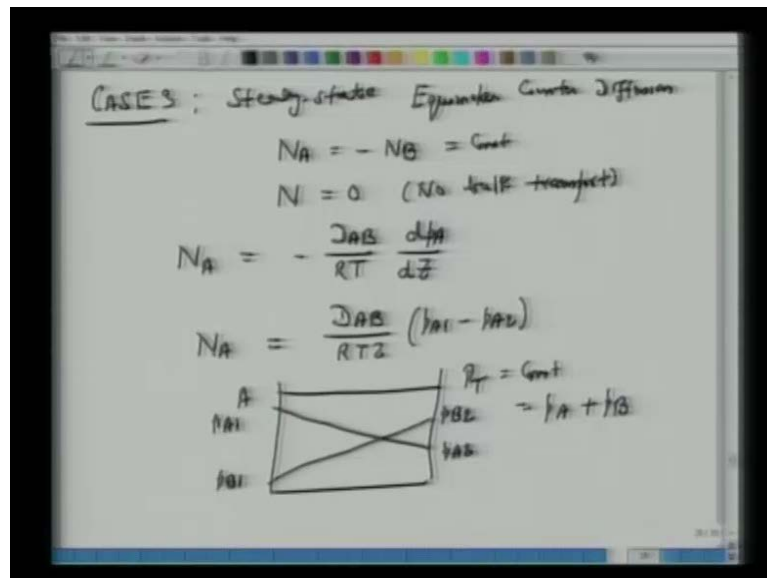 CASE 3 : Steady-state Equimolar Counter Diffusion
N_A = - N_B = Const
N = 0 (No bulk transport)
N_A = - D_AB/RT dp_A/dz
N_A = D_AB/RTZ (p_A1 - p_A2)
A P_T = Const
p_A1 p_B2 = p_A + p_B
p_A2
p_B1